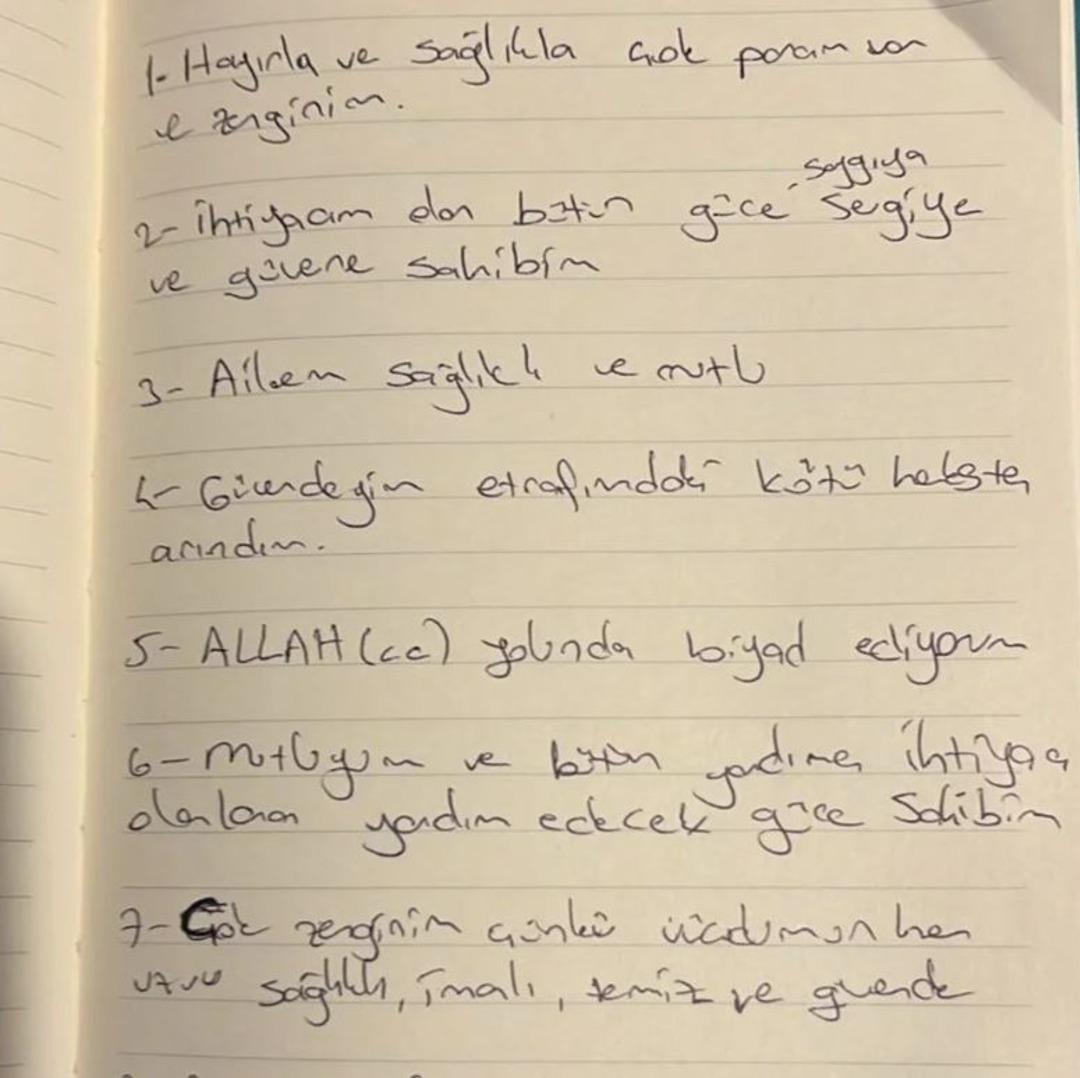 1- Hayırla ve sağlıkla çok param var
ve zenginim.
saygıya
2- ihtiyacım olan bütün güce, segiye
ve güvene sahibim
3- Ailem sağlıklı ve mutlu
4- Güvendeyim etrafımdaki kötü herkesten
arındım.
5- ALLAH (cc) yolunda biyad ediyorum
6- mutluyum ve bütün yardıma ihtiyacı
olanlara yardım edecek güce sahibim
7- Çok zenginim çünkü vücudumun her
uzvu sağlıklı, imalı, temiz ve güvende